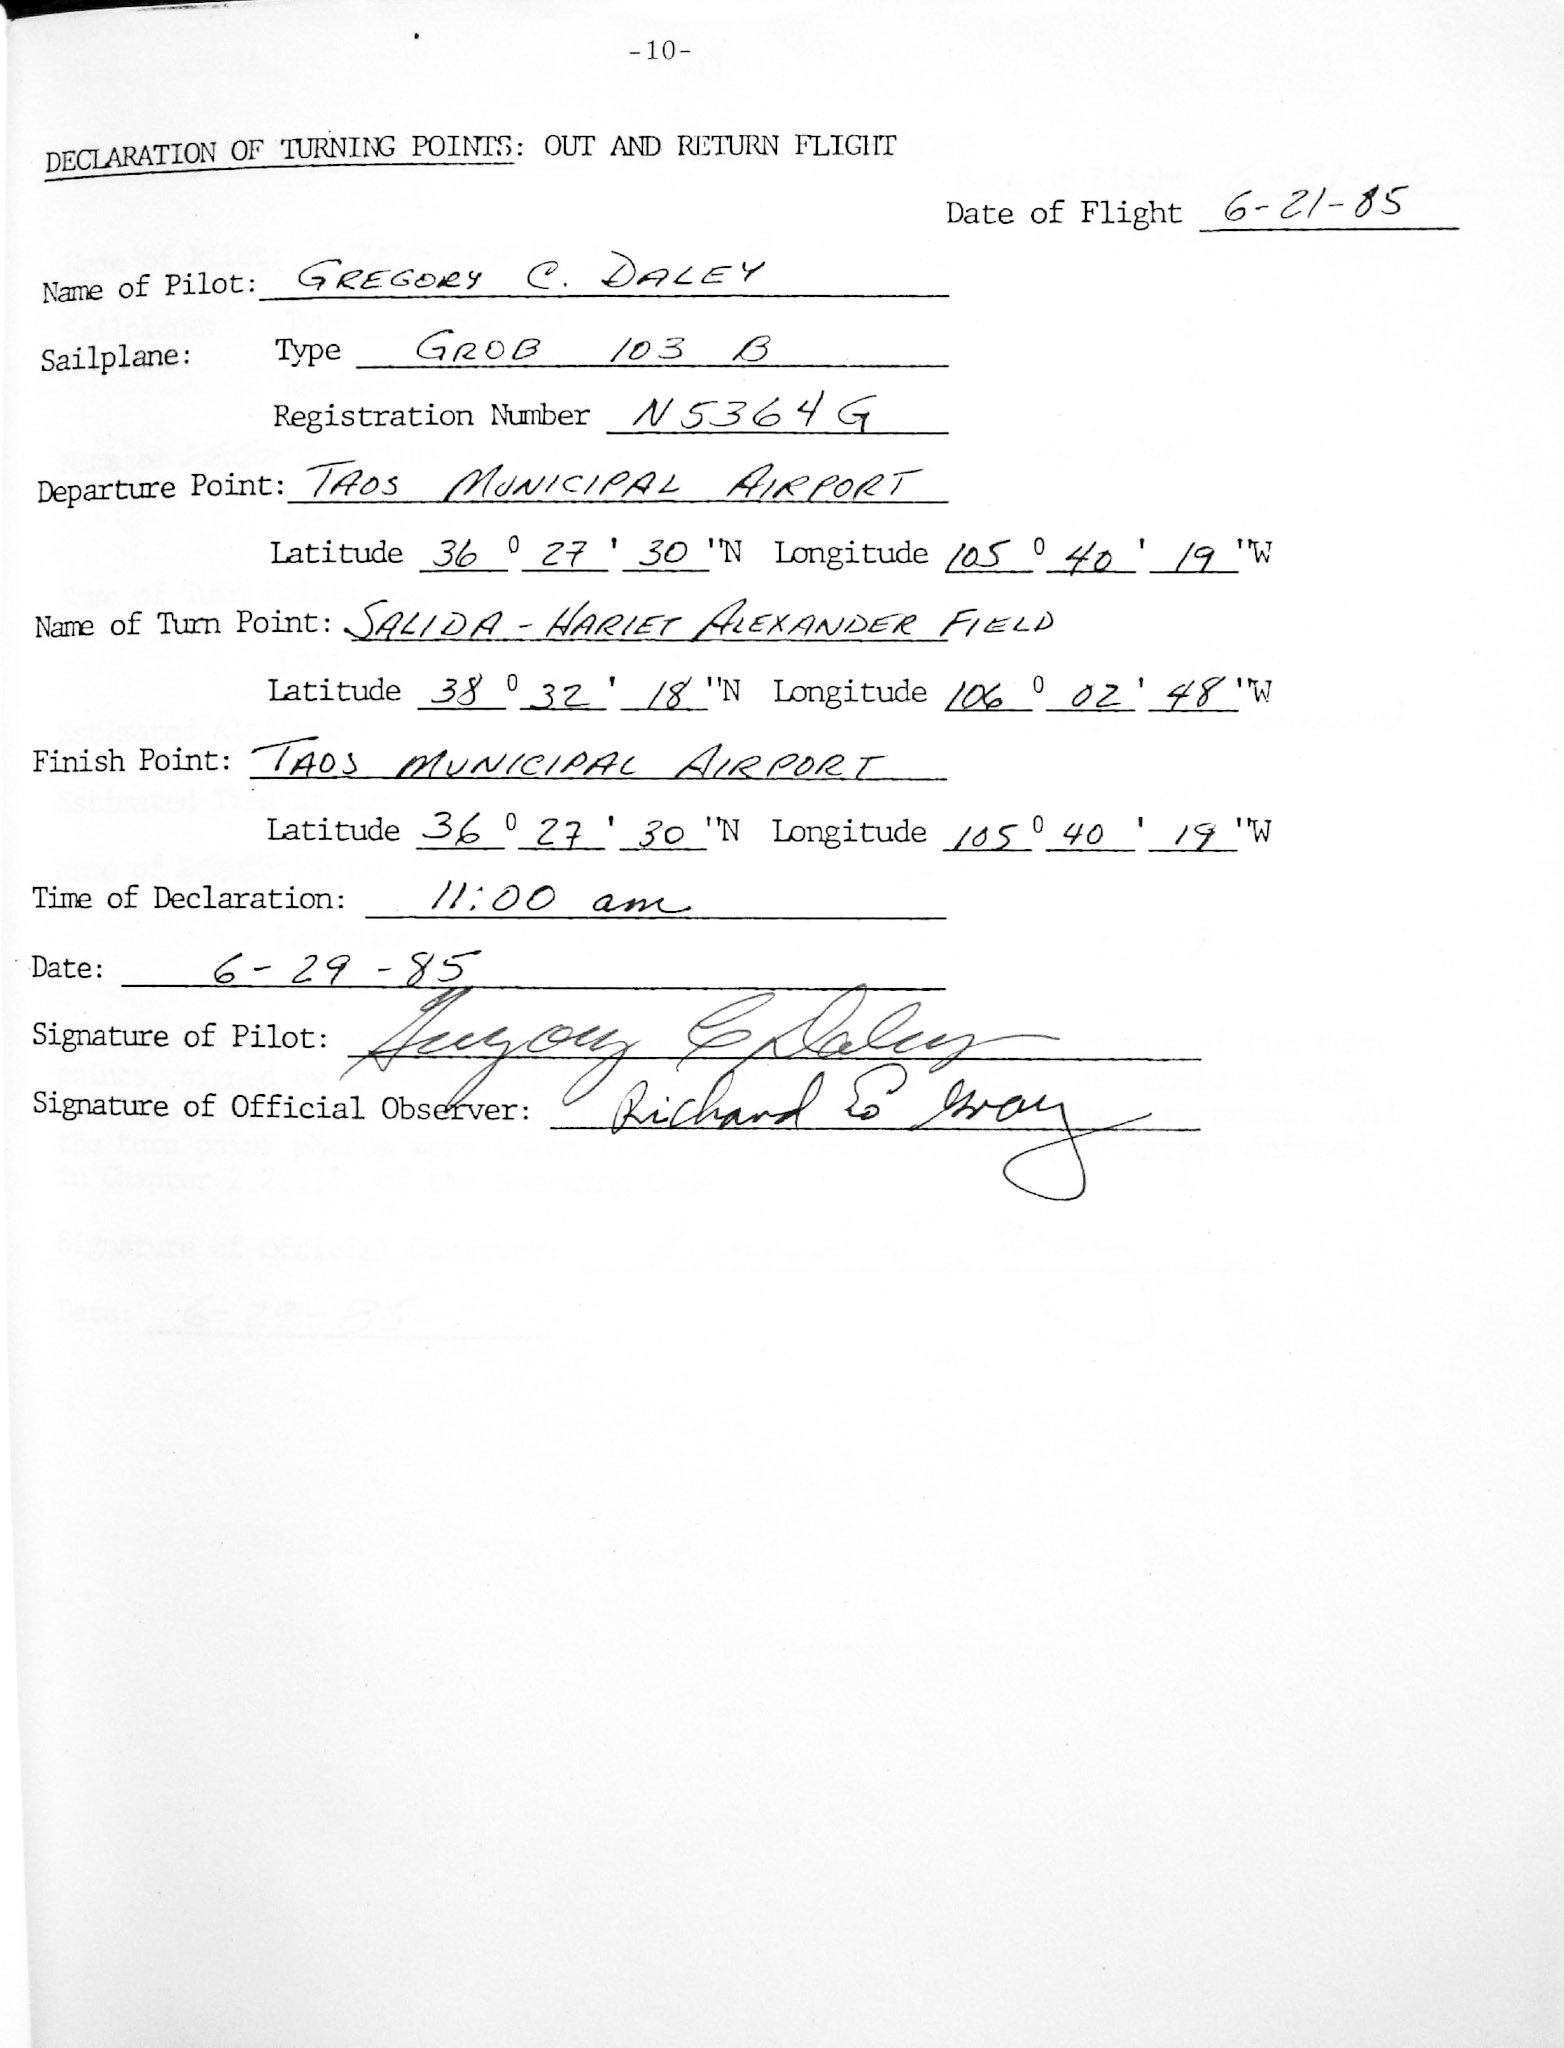 -10-
DECLARATION OF TURNING POINTS: OUT AND RETURN FLIGHT
Date of Flight 6-21-85
Name of Pilot: GREGORY C. DALEY
Sailplane: Type GROB 103 B
Registration Number N5364G
Departure Point: TAOS MUNICIPAL AIRPORT
Latitude 36 ⁰ 27 ' 30 "N Longitude 105 ⁰ 40 ' 19 "W
Name of Turn Point: SALIDA - HARIET ALEXANDER FIELD
Latitude 38 ⁰ 32 ' 18 "N Longitude 106 ⁰ 02 ' 48 "W
Finish Point: TAOS MUNICIPAL AIRPORT
Latitude 36 ⁰ 27 ' 30 "N Longitude 105 ⁰ 40 ' 19 "W
Time of Declaration: 11:00 am
Date: 6-29-85
Signature of Pilot: Gregory C Daley
Signature of Official Observer: Richard E Gray